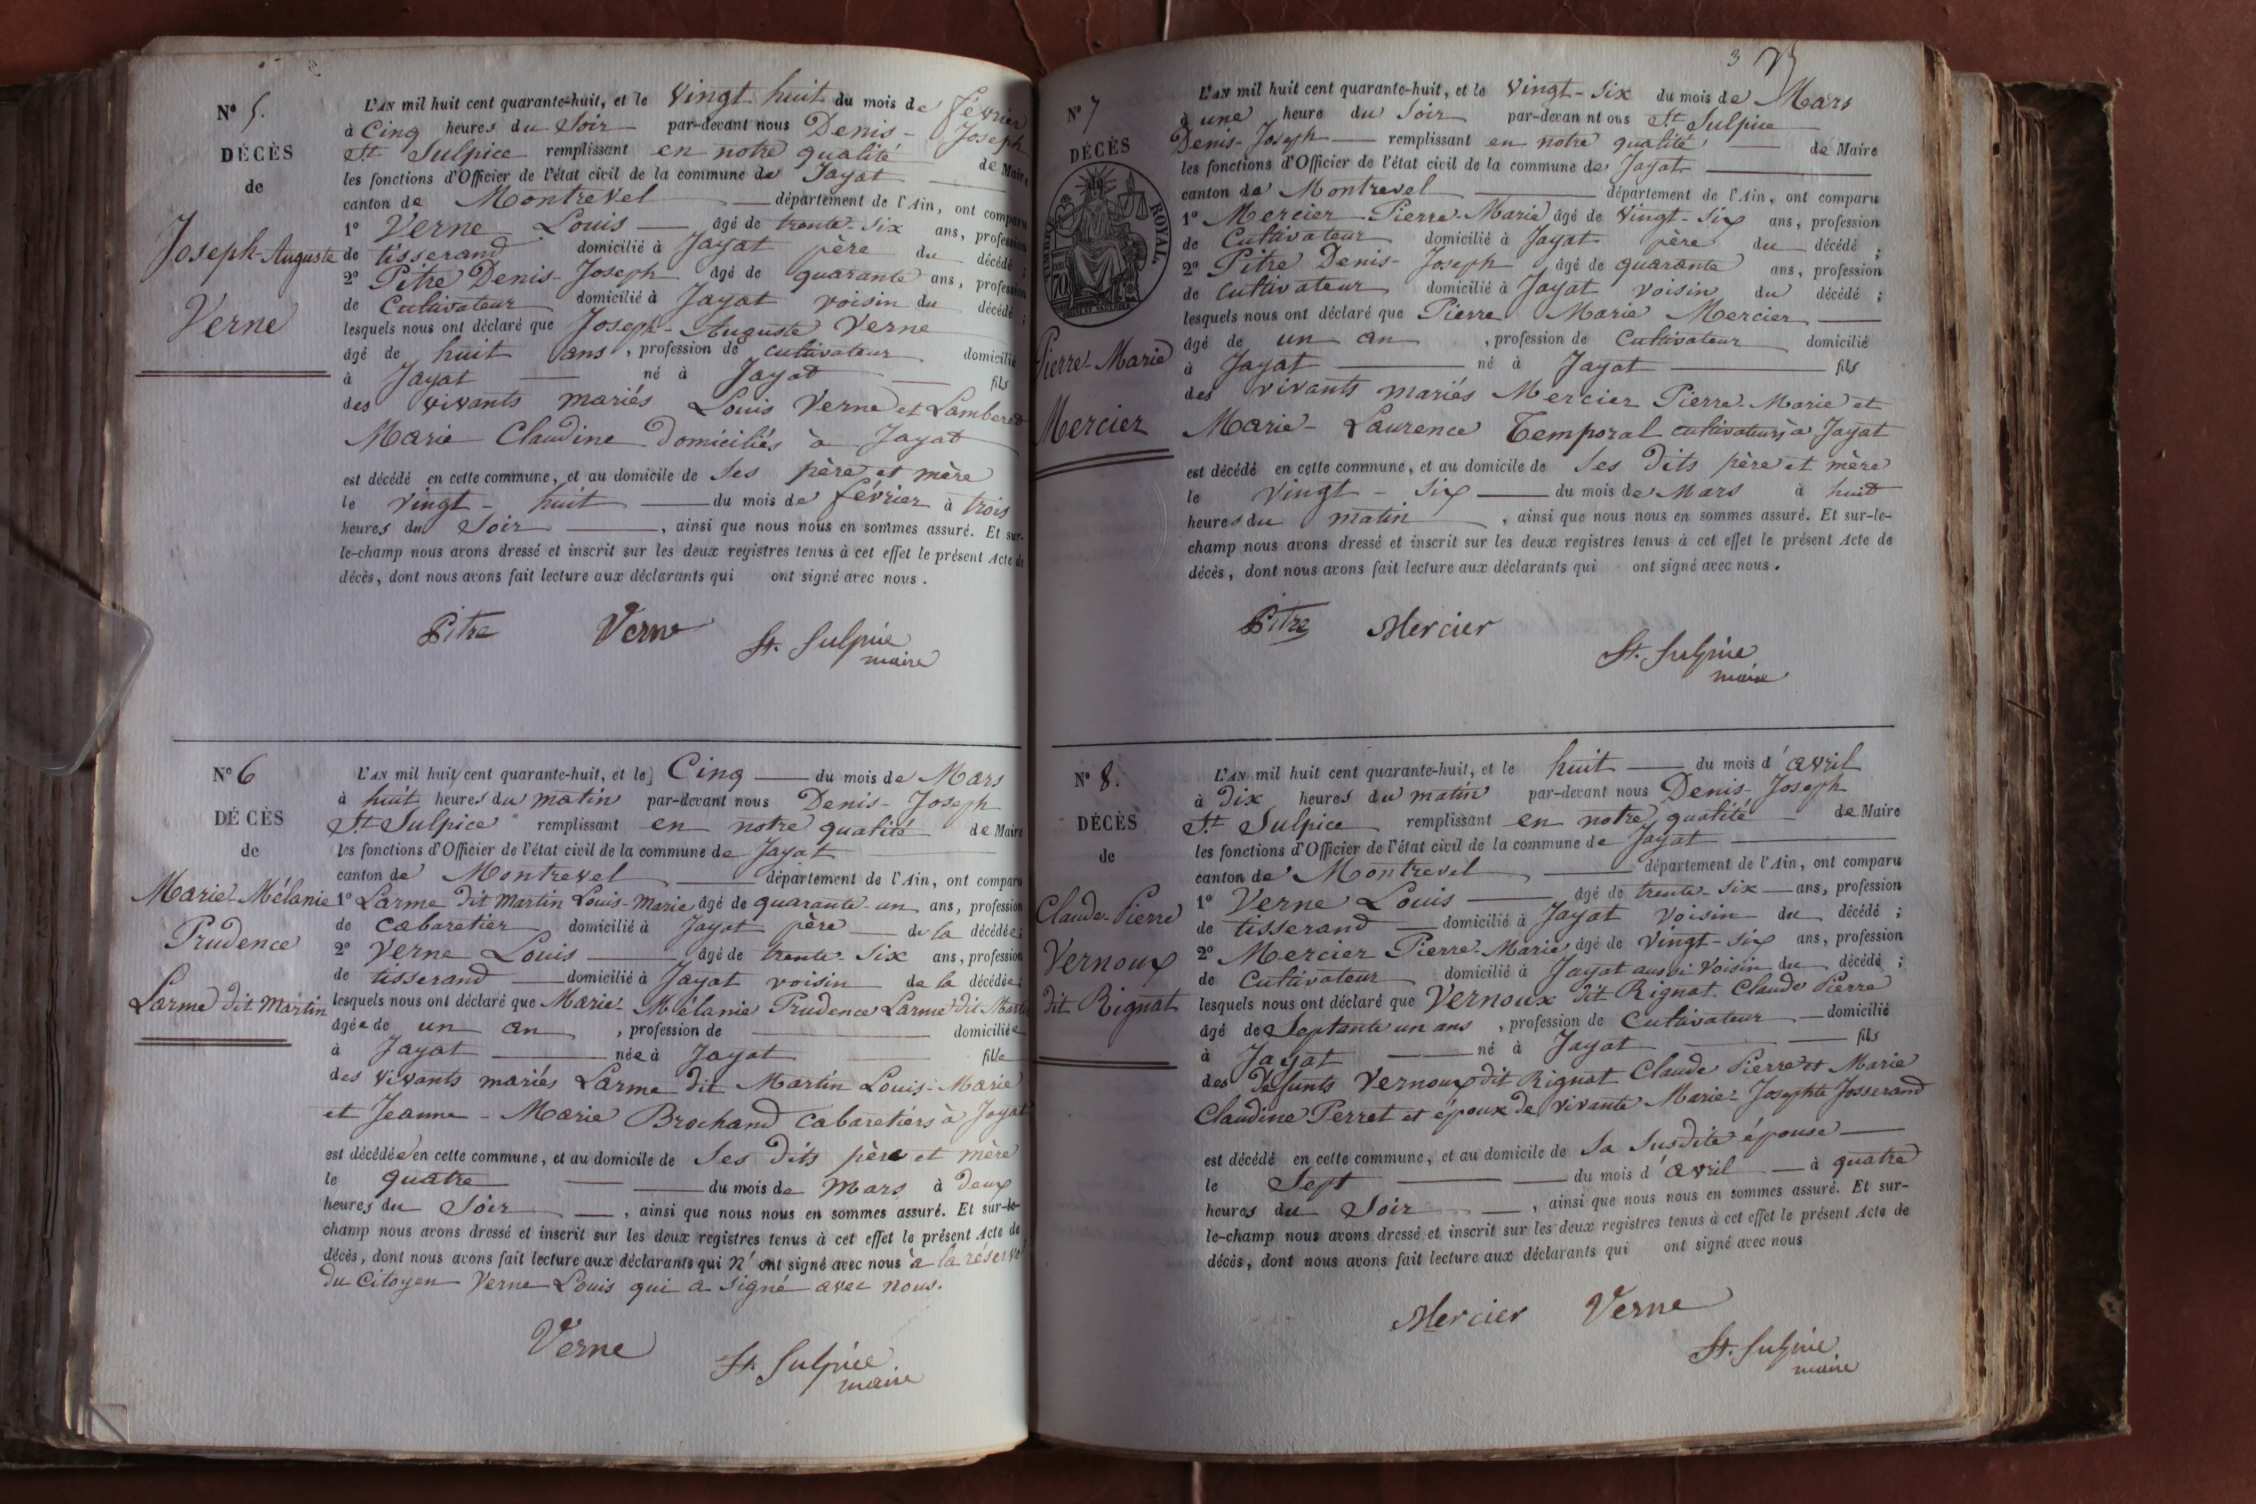 Nº 5.
DÉCÈS
de
Joseph-Auguste
Verne
L'AN mil huit cent quarante-huit, et le vingt-huit du mois de février
à Cinq heures du soir par-devant nous Denis-Joseph
St Sulpice remplissant en notre qualité de Maire
les fonctions d'Officier de l'état civil de la commune de Jayat
canton de Montrevel département de l'Ain, ont comparu
1º Verne Louis âgé de trente-six ans, profession
de tisserand domicilié à Jayat père du décédé ;
2º Pitre Denis-Joseph âgé de quarante ans, profession
de Cultivateur domicilié à Jayat voisin du décédé ;
lesquels nous ont déclaré que Joseph-Auguste Verne
âgé de huit ans, profession de cultivateur domicilié
à Jayat né à Jayat fils
des vivants mariés Louis Verne et Lamberet
Marie Claudine domiciliés à Jayat
est décédé en cette commune, et au domicile de ses père et mère
le vingt-huit du mois de février à trois
heures du soir, ainsi que nous nous en sommes assuré. Et sur-
le-champ nous avons dressé et inscrit sur les deux registres tenus à cet effet le présent Acte de
décès, dont nous avons fait lecture aux déclarants qui ont signé avec nous.
Pitre Verne St. Sulpice
maire
Nº 6
DÉCÈS
de
Marie-Mélanie
Prudence
Larme dit Martin
L'AN mil huit cent quarante-huit, et le Cinq du mois de Mars
à huit heures du matin par-devant nous Denis-Joseph
St Sulpice remplissant en notre qualité de Maire
les fonctions d'Officier de l'état civil de la commune de Jayat
canton de Montrevel département de l'Ain, ont comparu
1º Larme dit Martin Louis-Marie âgé de quarante-un ans, profession
de cabaretier domicilié à Jayat père de la décédée ;
2º Verne Louis âgé de trente-six ans, profession
de tisserand domicilié à Jayat voisin de la décédée
lesquels nous ont déclaré que Marie-Mélanie Prudence Larme dit Martin
âgée de un an, profession de domiciliée
à Jayat née à Jayat fille
des vivants mariés Larme dit Martin Louis-Marie
et Jeanne-Marie Brochand cabaretiers à Jayat
est décédée en cette commune, et au domicile de ses dits père et mère
le quatre du mois de Mars à deux
heures du soir, ainsi que nous nous en sommes assuré. Et sur-le-
champ nous avons dressé et inscrit sur les deux registres tenus à cet effet le présent Acte de
décès, dont nous avons fait lecture aux déclarants qui n'ont signé avec nous à la réserve
du Citoyen Verne Louis qui a signé avec nous.
Verne St. Sulpice
maire
3
Nº 7
DÉCÈS
de
TIMBRE ROYAL
Pierre-Marie
Mercier
L'AN mil huit cent quarante-huit, et le vingt-six du mois de Mars
à une heure du soir par-devan nt ous St Sulpice
Denis-Joseph remplissant en notre qualité de Maire
les fonctions d'Officier de l'état civil de la commune de Jayat
canton de Montrevel département de l'Ain, ont comparu
1º Mercier Pierre-Marie âgé de vingt-six ans, profession
de Cultivateur domicilié à Jayat père du décédé ;
2º Pitre Denis-Joseph âgé de quarante ans, profession
de cultivateur domicilié à Jayat voisin du décédé ;
lesquels nous ont déclaré que Pierre Marie Mercier
âgé de un an, profession de Cultivateur domicilié
à Jayat né à Jayat fils
des vivants mariés Mercier Pierre-Marie et
Marie-Laurence Temporal cultivateurs à Jayat
est décédé en cette commune, et au domicile de ses dits père et mère
le vingt-six du mois de Mars à huit
heures du matin, ainsi que nous nous en sommes assuré. Et sur-le-
champ nous avons dressé et inscrit sur les deux registres tenus à cet effet le présent Acte de
décès, dont nous avons fait lecture aux déclarants qui ont signé avec nous.
Pitre Mercier
St. Sulpice
maire
Nº 8.
DÉCÈS
de
Claude-Pierre
Vernoux
dit Rignat
L'AN mil huit cent quarante-huit, et le huit du mois d'avril
à dix heures du matin par-devant nous Denis-Joseph
St Sulpice remplissant en notre qualité de Maire
les fonctions d'Officier de l'état civil de la commune de Jayat
canton de Montrevel département de l'Ain, ont comparu
1º Verne Louis âgé de trente-six ans, profession
de tisserand domicilié à Jayat voisin du décédé ;
2º Mercier Pierre-Marie âgé de vingt-six ans, profession
de Cultivateur domicilié à Jayat aussi voisin du décédé ;
lesquels nous ont déclaré que Vernoux dit Rignat Claude Pierre
âgé de Septante un ans, profession de Cultivateur domicilié
à Jayat né à Jayat fils
des défunts Vernoux dit Rignat Claude Pierre et Marie
Claudine Perret et époux de vivante Marie-Josephte Josserand
est décédé en cette commune, et au domicile de sa susdite épouse
le Sept du mois d'avril à quatre
heures du soir, ainsi que nous nous en sommes assuré. Et sur-
le-champ nous avons dressé et inscrit sur les deux registres tenus à cet effet le présent Acte de
décès, dont nous avons fait lecture aux déclarants qui ont signé avec nous
Mercier Verne
St. Sulpice
maire